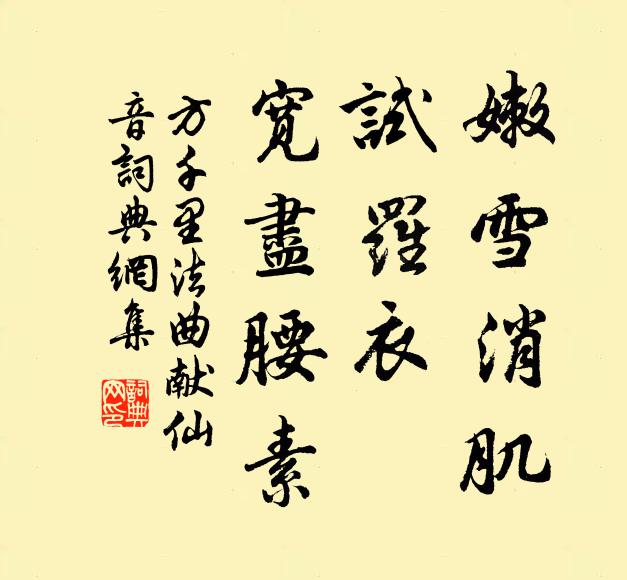 嫩雪消肌
試羅衣
寬盡腰素
方千里法曲献仙
音詞典網集
詞典網印